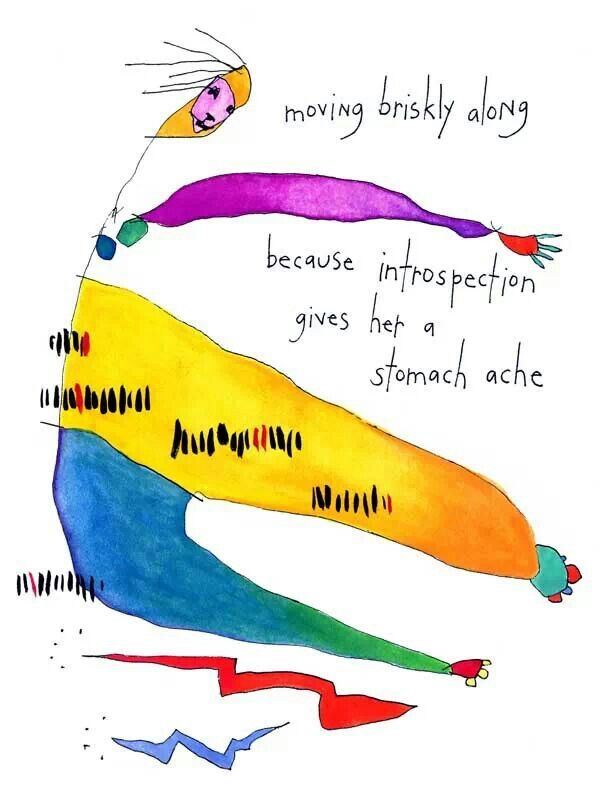 moving briskly along
because introspection
gives her a
stomach ache